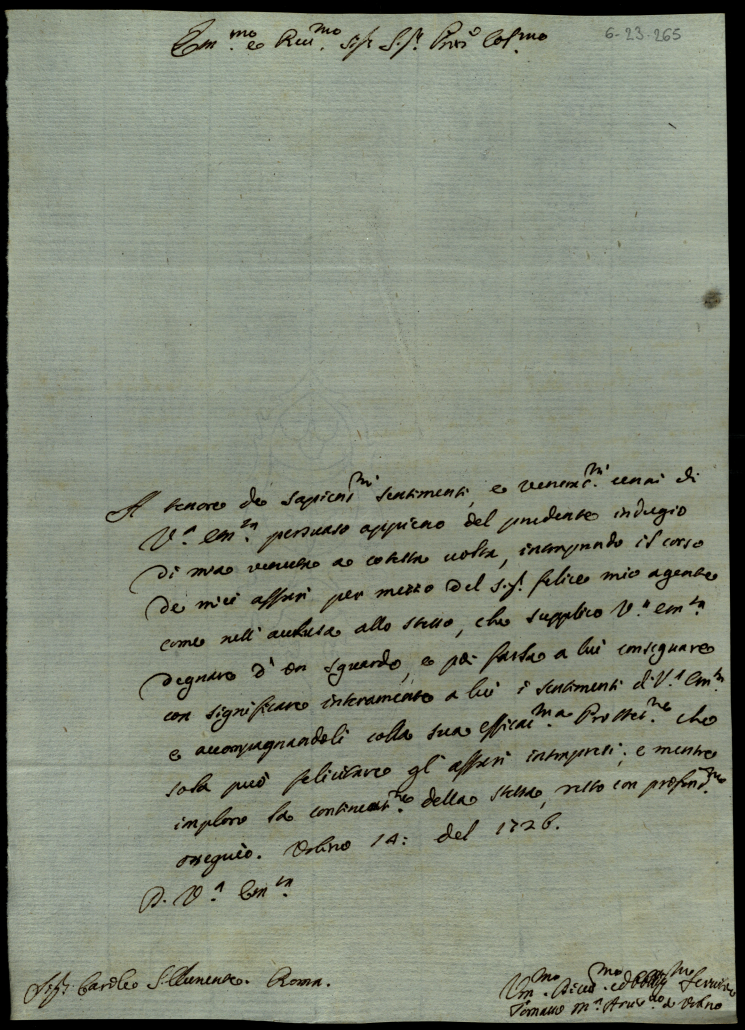 6-23-265
Em.mo e Rev.mo Sig.r Sig.r Pron. Col.mo
A tenore de Sapient.mi sentimenti, e venerat.mi cenni di
V.a Em.za persuaso appieno del prudente indugio
di mia venuta a cotesta volta, intraprendo il corso
de miei affari per mezzo del Sig.r Felice mio agente
come nell'acclusa allo stesso, che supplico V.a Em.za
degnare d'un sguardo, e poi farla a lui consegnare
con significare interamente a lui i sentimenti di V.a Em.za
e accompagnandoli colla sua efficac.ma Protet.ne che
sola può felicitare gli affari intrapresi; e mentre
imploro la continuat.ne della stessa, resto con profond.mo
ossequio. Urbino 14: del 1726.
D. V.a Em.za
Sig.r Card.le S. Clemente. Roma.
Um.mo Div.mo ed Obblig.mo Servitore
Tomaso M.a Arciv.o di Urbino